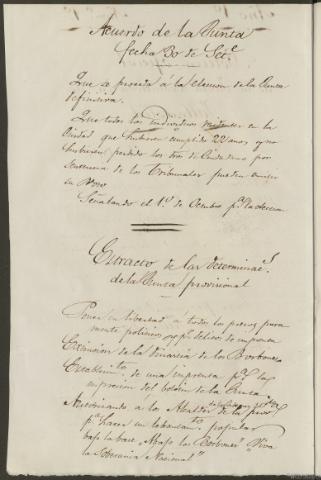 Acuerdo de la Junta
fecha 30 de Set.e
Que se proceda á la eleccion de la Junta
definitiva.
Que todos los individuos en la
Ciudad que hubieren cumplido 22 años y no
hubieren perdido los dros de Ciudadano por
sentencia de los Tribunales pueden emitir
su Voto
Señalando el 1.º de Octubre p.a la eleccion
Extracto de las determinac.s
de la Junta provisional
Poner en libertad á todos los presos pura
mente politicos y p.r delitos de imprenta
Extincion de la dinastia de los Borbones
Establecim.to de una imprenta p.a la
impresion del boletin de la Junta
Autorizando á los Alcaldes
p.a hacer un levantam.to popular
bajo la base "Abajo los Borbones" "Viva
la Soberania Nacional"